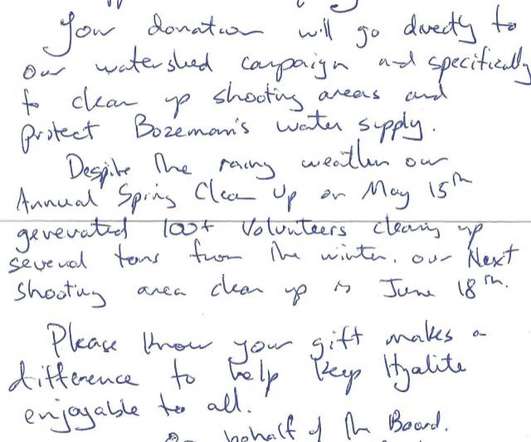 Your donation will go directly to
our watershed campaign and specifically
to clean up shooting areas and
protect Bozeman's water supply.
Despite the rainy weather our
Annual Spring Clean Up on May 15th
generated 100+ Volunteers cleaning up
several tons from the winter. Our Next
shooting area clean up is June 18th.
Please know your gift makes a
difference to help keep Hyalite
enjoyable to all.
On behalf of the Board.